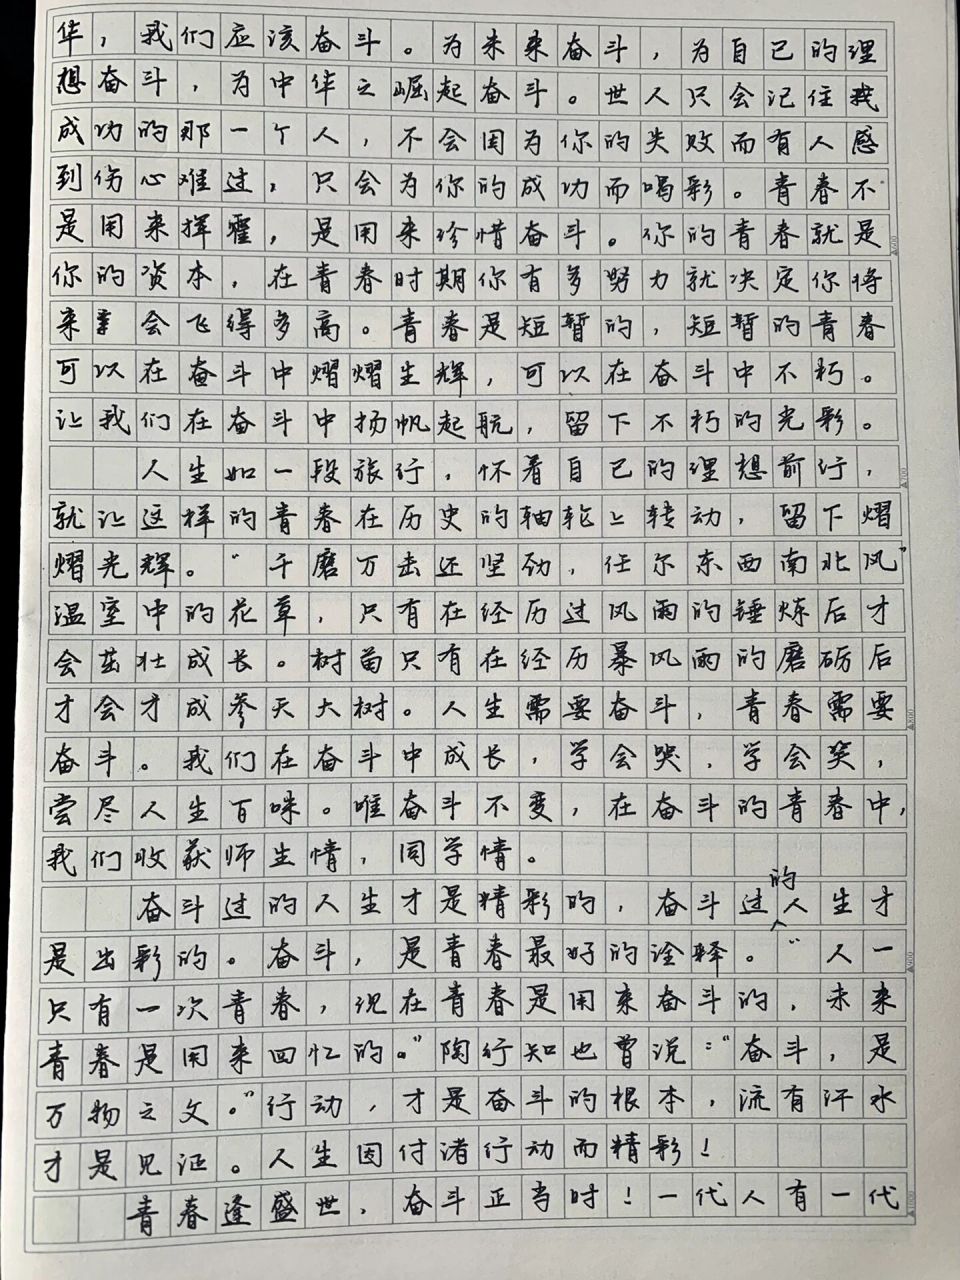 华，我们应该奋斗。为未来奋斗，为自己的理
想奋斗，为中华之崛起奋斗。世人只会记住我
成功的那一个人，不会因为你的失败而有人感
到伤心难过，只会为你的成功而喝彩。青春不
是用来挥霍，是用来珍惜奋斗。你的青春就是
你的资本，在青春时期你有多努力就决定你将
来 会飞得多高。青春是短暂的，短暂的青春
可以在奋斗中熠熠生辉，可以在奋斗中不朽。
让我们在奋斗中扬帆起航，留下不朽的光彩。
人生如一段旅行，怀着自己的理想前行，
就让这样的青春在历史的轴轮上转动，留下熠
熠光辉。“千磨万击还坚劲，任尔东西南北风”
温室中的花草，只有在经历过风雨的锤炼后才
会茁壮成长。树苗只有在经历暴风雨的磨砺后
才会才成参天大树。人生需要奋斗，青春需要
奋斗。我们在奋斗中成长，学会哭，学会笑，
尝尽人生百味。唯奋斗不变，在奋斗的青春中，
我们收获师生情，同学情。
奋斗过的人生才是精彩的，奋斗过的人生才
是出彩的。奋斗，是青春最好的诠释。“人一
只有一次青春，现在青春是用来奋斗的，未来
青春是用来回忆的。”陶行知也曾说：“奋斗，是
万物之父。”行动，才是奋斗的根本，流有汗水
才是见证。人生因付诸行动而精彩！
青春逢盛世，奋斗正当时！一代人有一代
▲600
▲700
▲800
▲900
▲1000